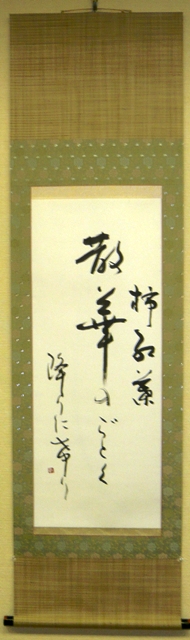 柿紅葉
散華のごとく
降りにけり